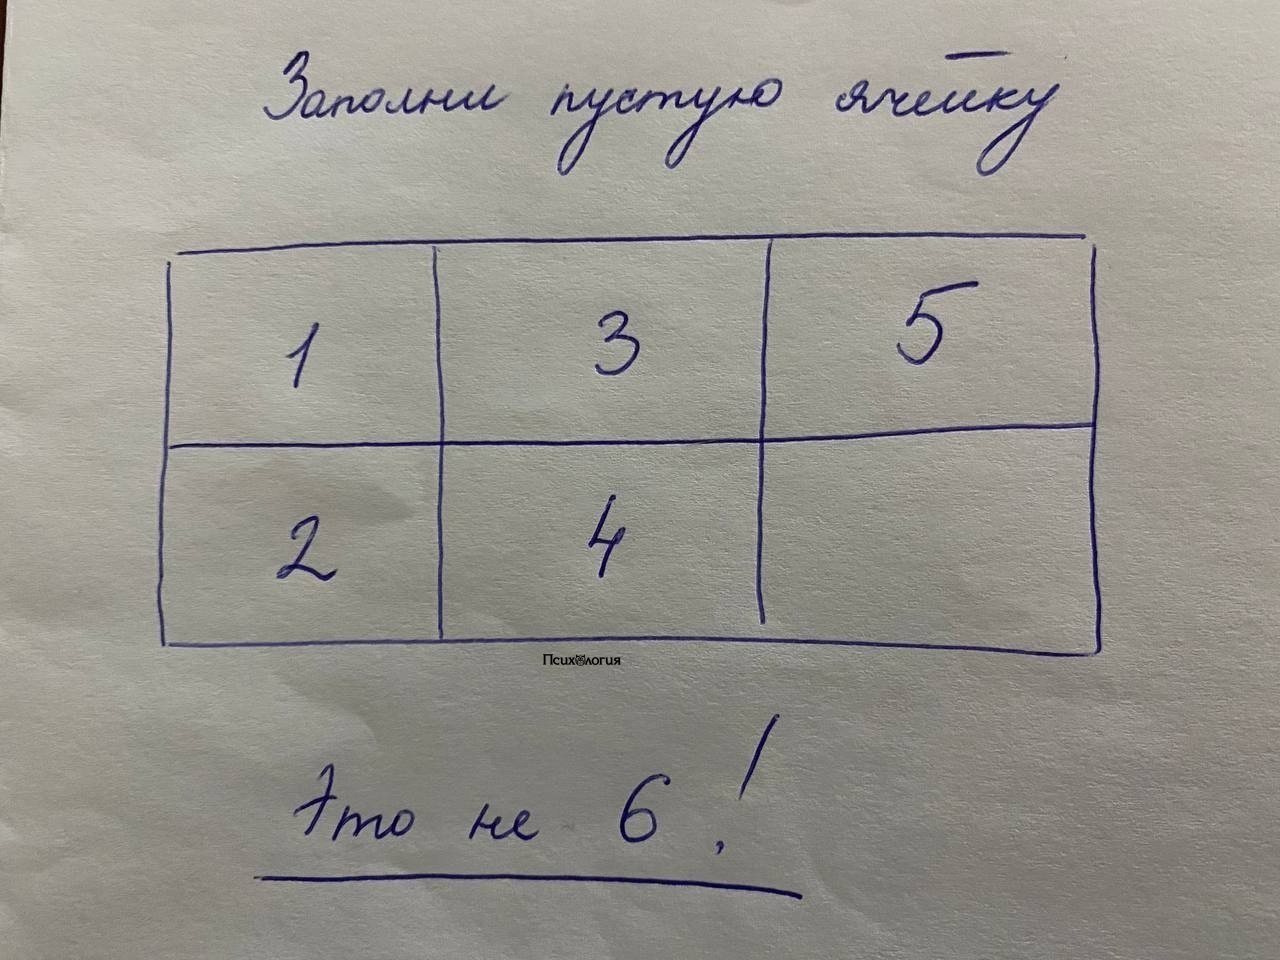 Заполни пустую ячейку
1 3 5
2 4
Психология
Это не 6!